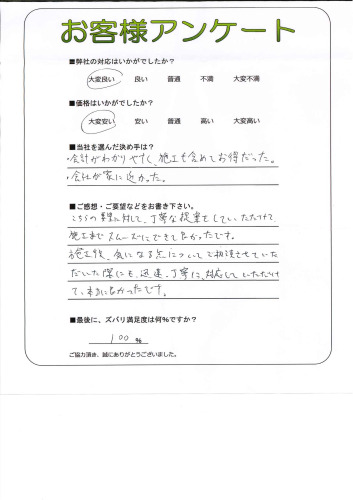 お客様アンケート
■弊社の対応はいかがでしたか？
大変良い 良い 普通 不満 大変不満
■価格はいかがでしたか？
大変安い 安い 普通 高い 大変高い
■当社を選んだ決め手は？
・会計がわかりやすく、施工も含めてお得だった。
・会社が家に近かった。
■ご感想・ご要望などをお書き下さい。
こちらの要望に対して、丁寧な提案をしていただけて、
施工までスムーズにできて良かったです。
施工後、気になる点について相談させていた
だいた際にも、迅速、丁寧に対応していただけ
て、本当によかったです。
■最後に、ズバリ満足度は何%ですか？
100 %
ご協力頂き、誠にありがとうございました。